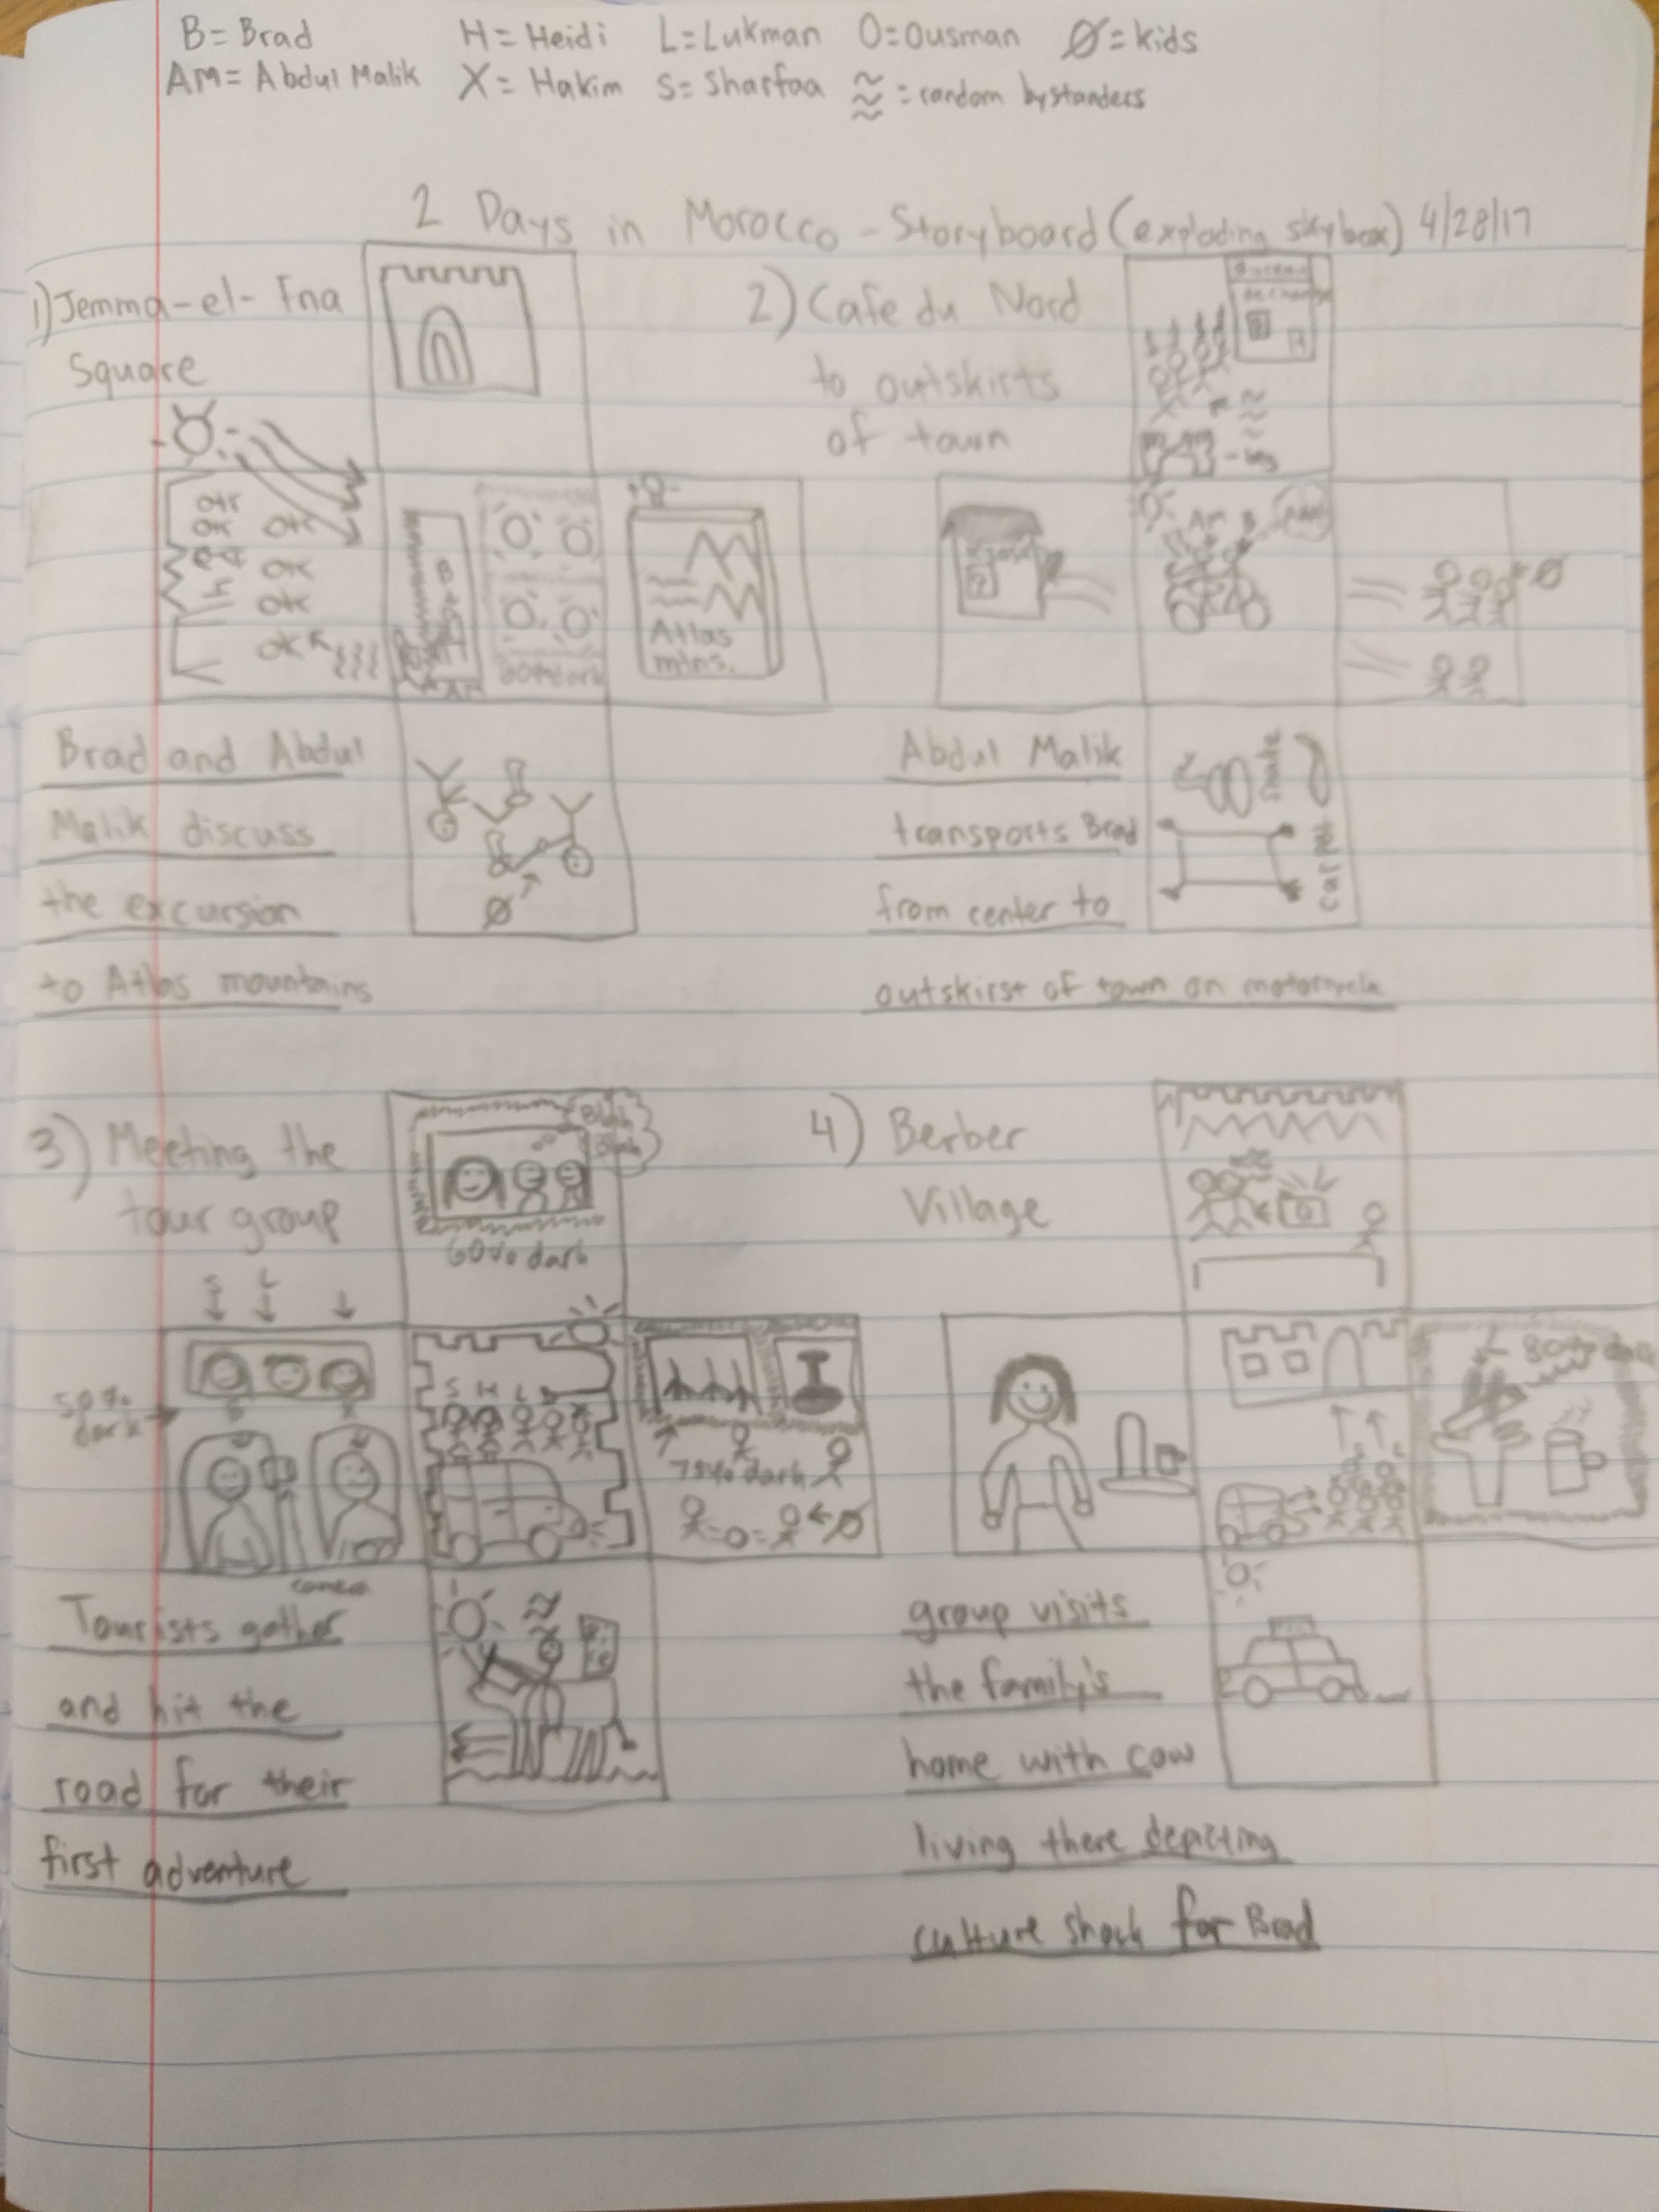 B= Brad H= Heidi L= Lukman O= Ousman Ø= kids
AM= Abdul Malik X= Hakim S= Sharfaa ≈ = random bystanders
2 Days in Morocco - Storyboard (exploding skybox) 4/28/17
1) Jemma-el-Fna
Square
Atlas
mtns.
Brad and Abdul
Malik discuss
the excursion
to Atlas mountains
Ø
2) Cafe du Nord
to outskirts
of town
Bureau
de Change
AM B
Ø
Snake
Carpet
Abdul Malik
transports Brad
from center to
outskirst of town on motorcycle
3) Meeting the
tour group
Blah
Blah
60% dark
S L
50%
dark
S H L B
75% dark
Ø
camera
Tourists gather
and hit the
road for their
first adventure
4) Berber
Village
80% dark
group visits
the family's
home with cow
living there depicting
culture shock for Brad